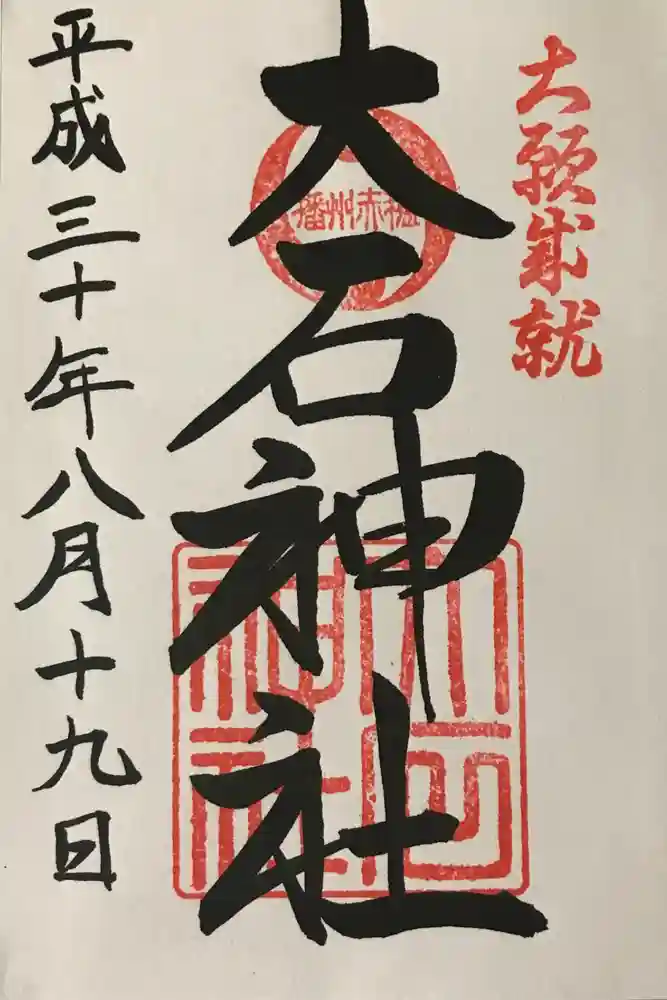 大願成就
大石神社
播州赤穂
大石神社
平成三十年八月十九日